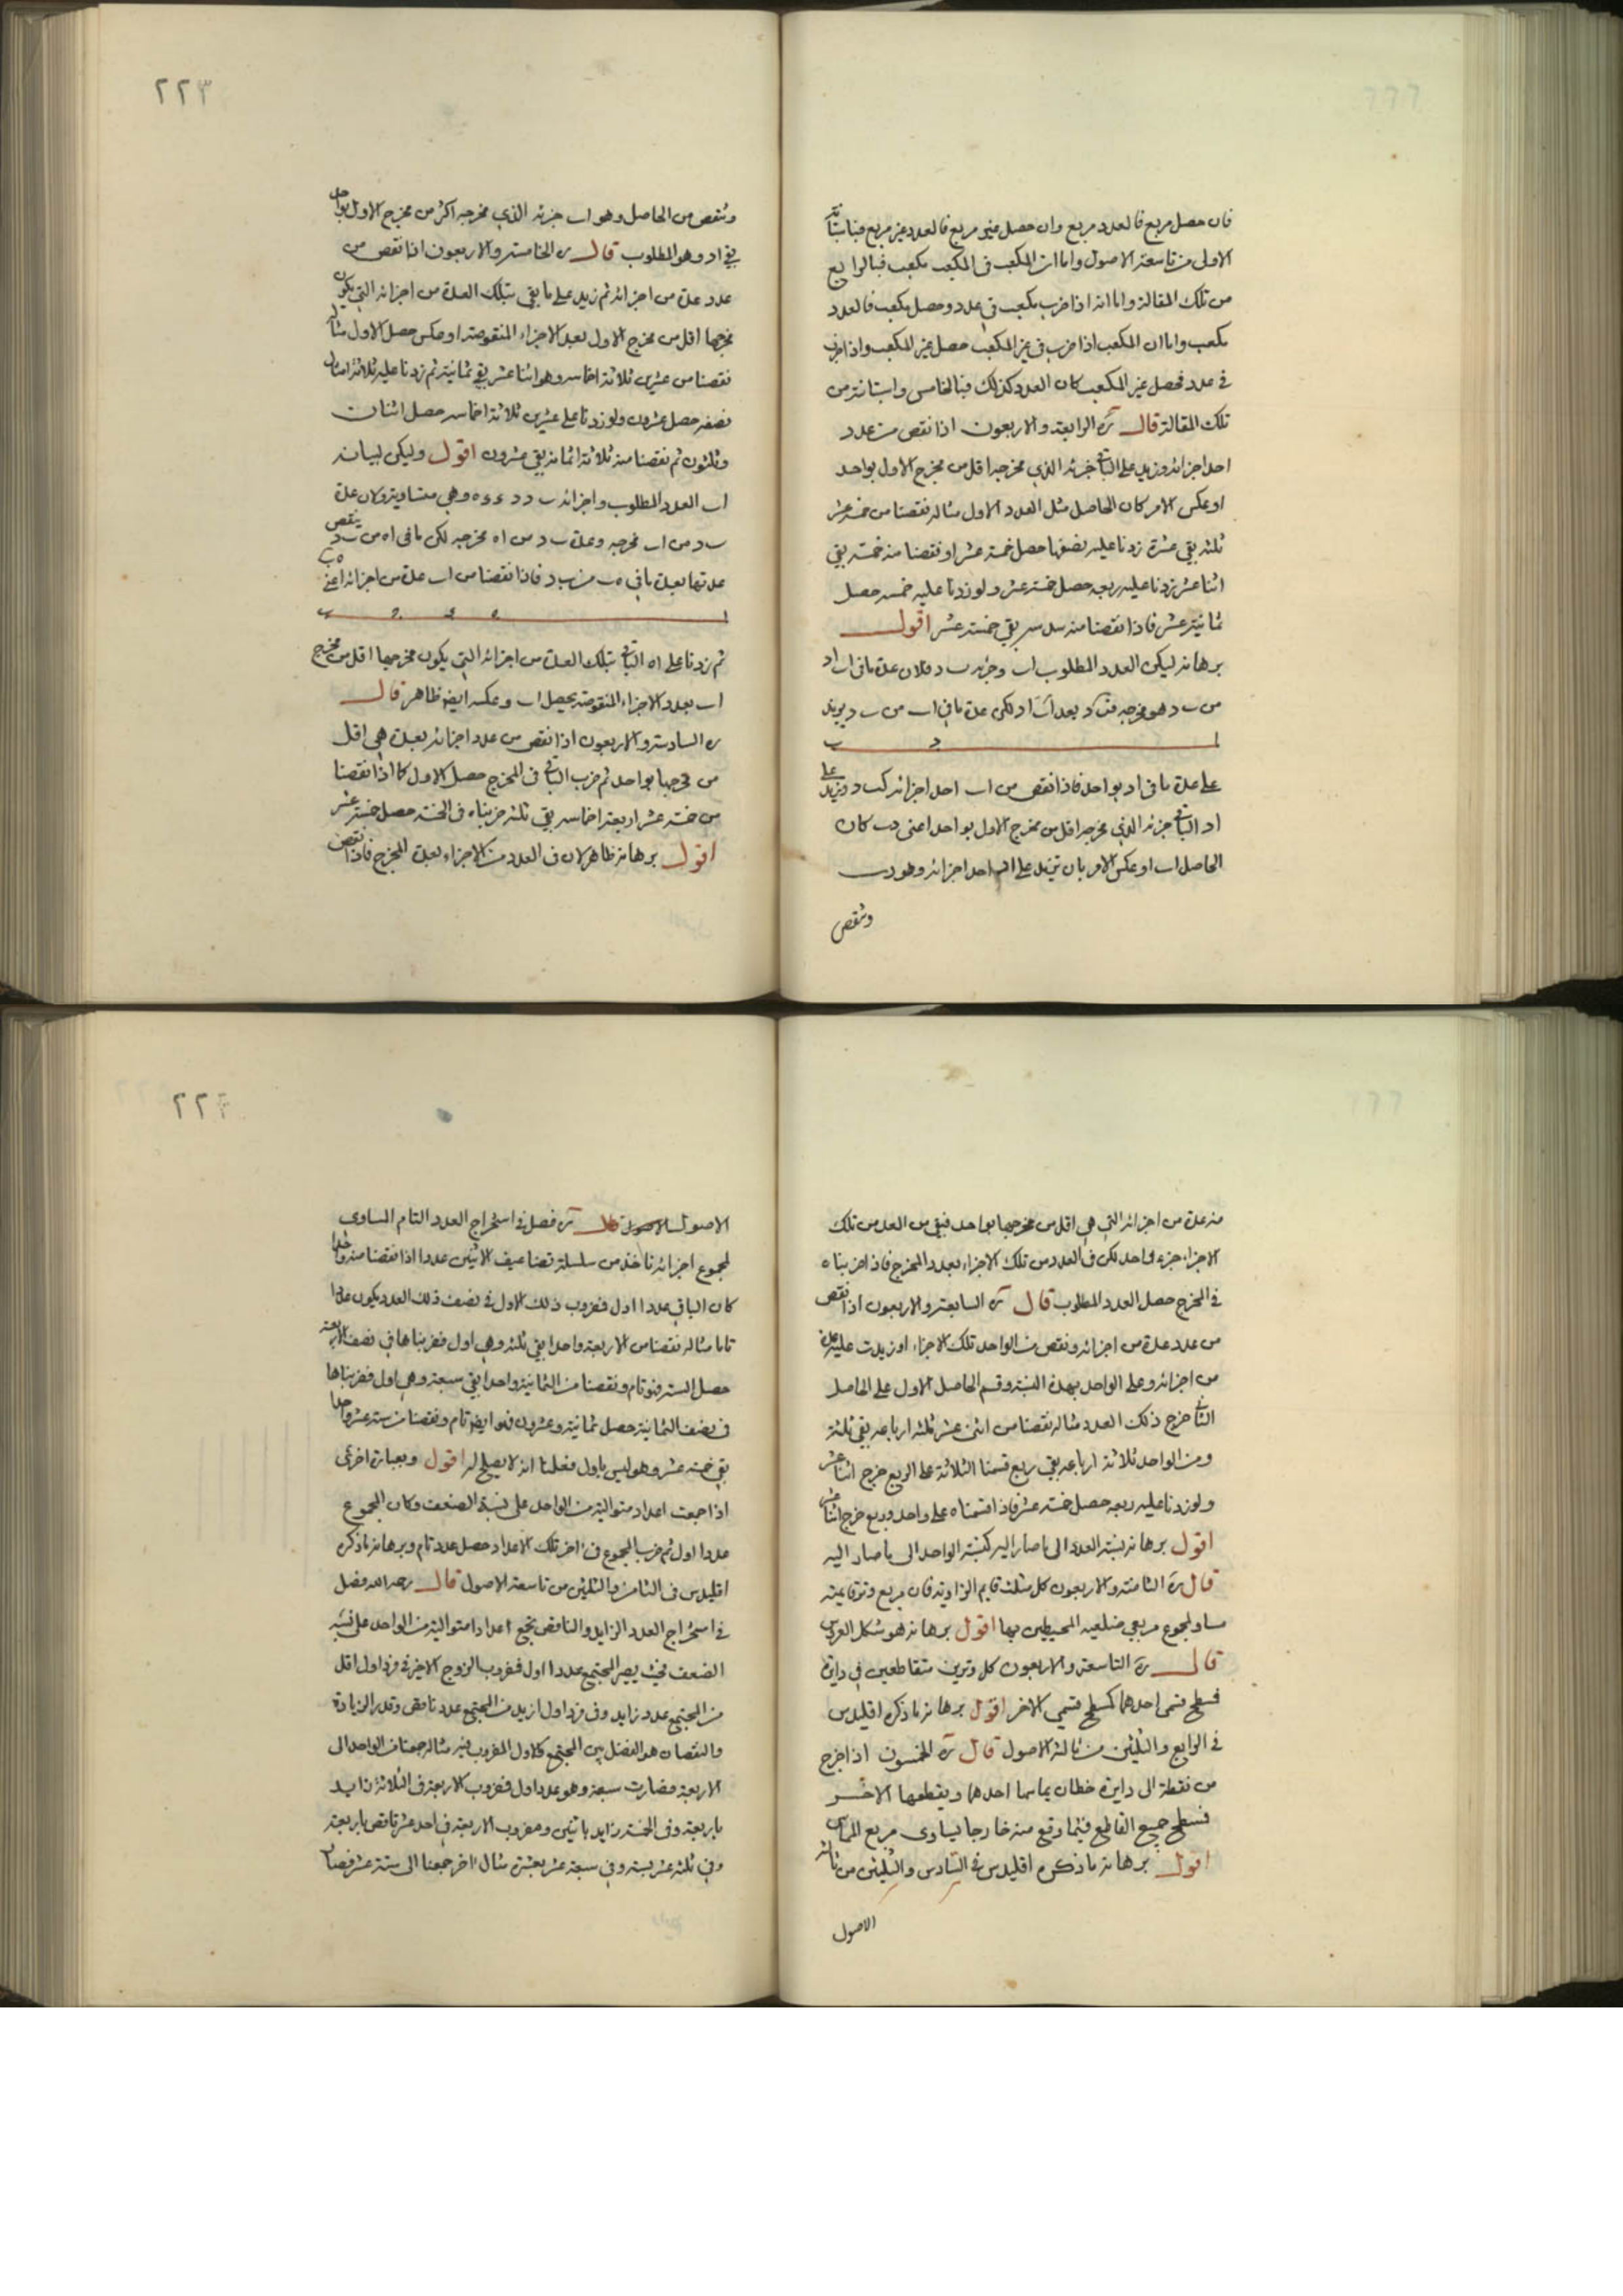 فان حصل مربع فالعدد مربع وان حصل غير مربع فالعدد غير مربع
الاولى من تاسعة الاصول واما ان المكعب فى المكعب مكعب فبالرابع
من تلك المقالة واما انه اذا ضرب مكعب فى عدد وحصل مكعب فالعدد
مكعب واما ان المكعب اذا ضرب فى غير المكعب حصل غير المكعب واذا ضرب
فى عدد فحصل غير المكعب كان العدد كذلك فبالخامس من
تلك المقالة قال ره الرابعة والاربعون اذا نقص من عدد
احد اجزائه وزيد على الباقى جزئه الذى مخرجه اقل من مخرج الاول بواحد
او عكس الامر كان الحاصل مثل العدد الاول مثاله نقصنا من خمسة عشر
ثلثه بقى عشرة زدنا عليه نصفها حصل خمسة عشر او نقصنا منه خمسه بقى
اثنا عشر زدنا عليه ربعه حصل خمسة عشر ولو زدنا عليه خمسه حصل
ثمانية عشر فاذا نقصنا منه سدسه بقى خمسة عشر اقول
برهانه ليكن العدد المطلوب اب وجزئه ب د فلان عدة ما فى اب اد
من ب د هو مخرجه لكن عدة ما فى اب من ب د يزيد
ا د ب
على عدة ما فى اد بواحد فاذا نقص من اب احد اجزائه كب د وزيد على
اد الباقى جزئه الذى مخرجه اقل من مخرج الاول بواحد اعنى دب كان
الحاصل اب او عكس الامر بان نزيد على اد احد اجزائه وهو دب
وننقص
٢٢٣
وننقص من الحاصل وهو اب جزئه الذى مخرجه اكثر من مخرج الاول بواحد
بقى اد وهو المطلوب قال ره الخامسة والاربعون اذا نقص من
عدد عدة من اجزائه ثم زيد على ما بقى بتلك العدة من اجزائه التى يكون
مخرجها اقل من مخرج الاول بعدد الاجزاء المنقوصة او عكس حصل الاول مثاله
نقصنا من عشرين ثلاثة اخماسه وهو اثنا عشر بقى ثمانية ثم زدنا عليه ثلاثة امثال
نصفه حصل عشرون ولو زدنا على عشرين ثلاثة اخماسه حصل اثنان
وثلثون ثم نقصنا منه ثلاثة اثمانه بقى عشرون اقول وليكن لبيانه
اب العدد المطلوب واجزائه وهى متساوية ولان عدة
ب د من اب مخرجه وعدة ب د من اه مخرجه لكن ما فى اه من ب د ينقص
عدتها بعدة ما فى ه ب من ب د فاذا نقصنا من اب عدة من اجزائه اعنى ه ب
ا ه ج د ب
ثم زدنا على اه الباقى بتلك العدة من اجزائه التى يكون مخرجها اقل من مخرج
اب بعدد الاجزاء المنقوصة يحصل اب وعكسه ايضا ظاهر قال
ره السادسة والاربعون اذا نقص من عدد اجزائه بعدة هى اقل
من مخرجها بواحد ثم ضرب الباقى فى المخرج حصل الاول كما اذا نقصنا
من خمسة عشر اربعة اخماسه بقى ثلثه ضربناه فى الخمسة حصل خمسة عشر
اقول برهانه ظاهر لان فى العدد من الاجزاء بعدة المخرج فاذا نقص
منه عدة من اجزائه التى هى اقل من مخرجها بواحد فبقى من العدد من تلك
الاجزاء جزء واحد لكن فى العدد من تلك الاجزاء بعدد المخرج فاذا ضربناه
فى المخرج حصل العدد المطلوب قال ره السابعة والاربعون اذا نقص
من عدد عدة من اجزائه ونقص من الواحد تلك الاجزاء او زيدت عليه عدة
من اجزائه وعلى الواحد بهذه النسبة وقسم الحاصل الاول على الحاصل
الثانى خرج ذلك العدد مثاله نقصنا من اثنى عشر ثلثة ارباعه بقى ثلثة
ومن الواحد ثلاثة ارباعه بقى ربع قسمنا الثلاثة على الربع خرج اثنا عشر
ولو زدنا عليه ربعه حصل خمسة عشر فاذا قسمناه على واحد وربع خرج اثنا عشر
اقول برهانه نسبة العدد الى ما صار اليه كنسبة الواحد الى ما صار اليه
قال ره الثامنة والاربعون كل مثلث قايم الزاوية فان مربع وتر قايمته
مساو لمجموع مربعى ضلعيه المحيطين بها اقول برهانه هو شكل العروس
قال ره التاسعة والاربعون كل وترين متقاطعين فى دايرة
فسطح قسمى احدهما كسطح قسمى الاخر اقول برهانه ما ذكره اقليدس
فى الرابع والثلثين من ثالثة الاصول قال ره الخمسون اذا خرج
من نقطة الى دايرة خطان يماسها احدهما ويقطعها الاخر
فسطح جميع القاطع فيما وقع منه خارجا يساوى مربع المماس
اقول برهانه ما ذكره اقليدس فى السادس والثلثين من ثالثة
الاصول
٢٢٤
الاصول قال ره فصل فى استخراج العدد التام المساوى
لمجموع اجزائه ناخذ من سلسلة تضاعيف الاثنين عددا اذا نقصنا منه واحدا
كان الباقى عددا اول فمضروب ذلك الاول فى نصف ذلك العدد يكون عددا
تاما مثاله نقصنا من الاربعة واحدا بقى ثلثة وهى اول فضربناها فى نصف الاربعة
حصل الستة فهو تام ونقصنا من الثمانية واحدا بقى سبعة وهى اول فضربناها
فى نصف الثمانية حصل ثمانية وعشرون فهو ايضا تام ونقصنا من ستة عشر واحدا
بقى خمسة عشر وهو ليس باول فعلمنا انه لا يصلح له اقول وبعبارة اخرى
اذا جمعت اعداد متوالية من الواحد على نسبة الضعف وكان المجموع
عددا اول ثم ضرب المجموع فى اخر تلك الاعداد حصل عدد تام وبرهانه ما ذكره
اقليدس فى الثامن والثلثين من تاسعة الاصول قال رحمه الله فصل
فى استخراج العدد الزايد والناقص نجمع اعدادا متوالية من الواحد على نسبة
الضعف بحيث يصير المجتمع عددا اول فمضروب الزوج الاخير فى فرد اول اقل
من المجتمع عدد زايد وفى فرد اول ازيد من المجتمع عدد ناقص وقدر الزيادة
والنقصان هو الفضل بين المجتمع والاول المضروب فيه مثاله جمعنا من الواحد الى
الاربعة فصارت سبعة وهو عدد اول فمضروب الاربعة فى الثلاثة زايد
باربعة وفى الخمسة زايد باثنين ومضروب الاربعة فى احد عشر ناقص باربعة
وفى ثلثة عشر بستة وفى سبعة عشر بعشرة مثال اخر جمعنا الى ستة عشر فصار